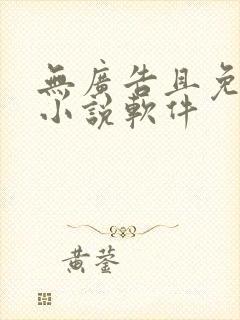 無廣告且免
小說軟件
黃蓥